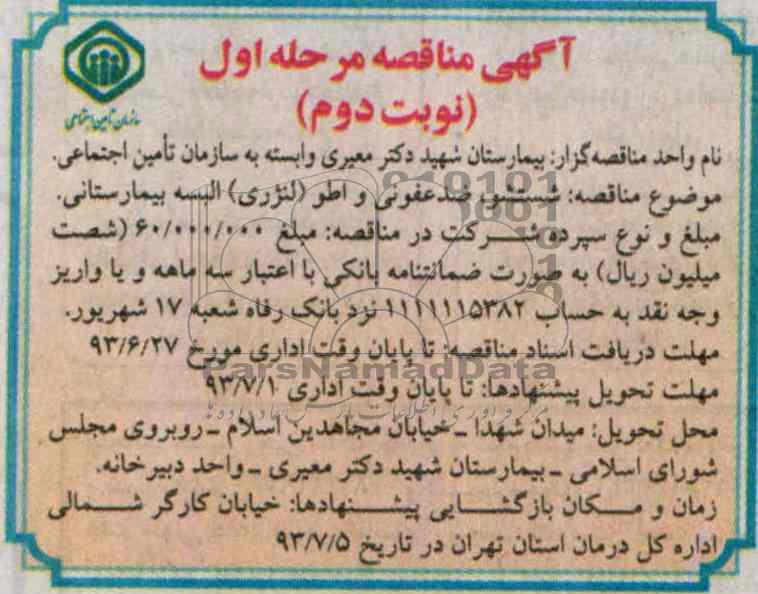 آگهی مناقصه مرحله اول
(نوبت دوم)
سازمان تأمین اجتماعی
نام واحد مناقصه‌گزار: بیمارستان شهید دکتر معیری وابسته به سازمان تأمین اجتماعی.
موضوع مناقصه: شستشو، ضدعفونی و اطو (لنژری) البسه بیمارستانی.
مبلغ و نوع سپرده شرکت در مناقصه: مبلغ ۶۰/۰۰۰/۰۰۰ (شصت
میلیون ریال) به صورت ضمانتنامه بانکی با اعتبار سه ماهه و یا واریز
وجه نقد به حساب ۱۱۱۱۱۱۵۳۸۲ نزد بانک رفاه شعبه ۱۷ شهریور.
مهلت دریافت اسناد مناقصه: تا پایان وقت اداری مورخ ۹۳/۶/۲۷
ParsNamadData
مهلت تحویل پیشنهادها: تا پایان وقت اداری ۹۳/۷/۱
مرکز فرآوری اطلاعات پارس نماد داده‌ها
محل تحویل: میدان شهدا ـ خیابان مجاهدین اسلام ـ روبروی مجلس
شورای اسلامی ـ بیمارستان شهید دکتر معیری ـ واحد دبیرخانه.
زمان و مکان بازگشایی پیشنهادها: خیابان کارگر شمالی
اداره کل درمان استان تهران در تاریخ ۹۳/۷/۵